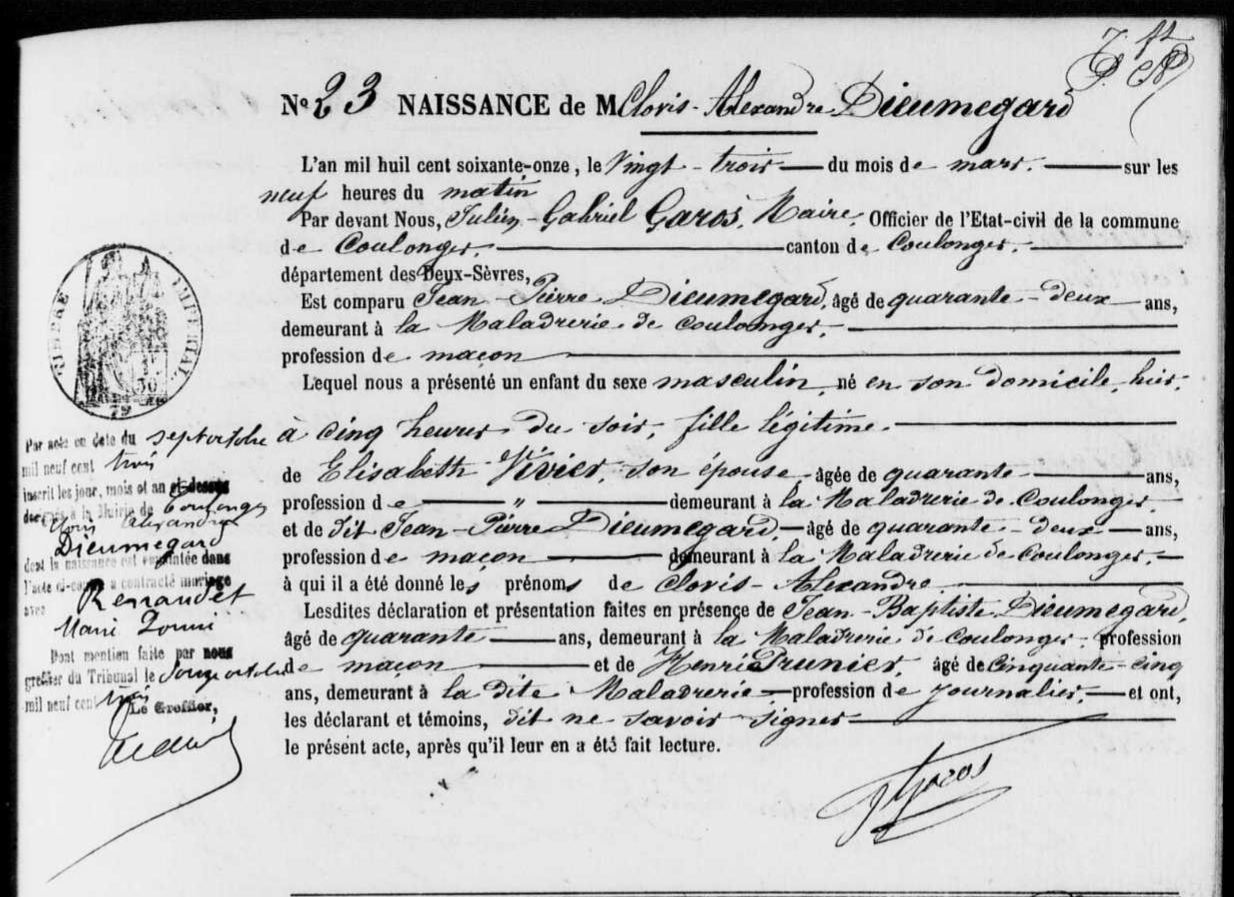 Nº 23 NAISSANCE de M Clovis-Alexandre Dieumegard
L'an mil huit cent soixante-onze, le Vingt-trois du mois de mars. sur les
neuf heures du matin
Par devant Nous, Julien-Gabriel Garos, Maire, Officier de l'Etat-civil de la commune
de Coulonges. canton de Coulonges.
département des Deux-Sèvres,
Est comparu Jean-Pierre Dieumegard, âgé de quarante-deux ans,
demeurant à la Maladrerie de Coulonges,
profession de maçon
Lequel nous a présenté un enfant du sexe masculin, né en son domicile, hier,
à cinq heures du soir, fille légitime.
de Elisabeth Vivier, son épouse, âgée de quarante ans,
profession de " demeurant à la Maladrerie de Coulonges
et de dit Jean-Pierre Dieumegard, âgé de quarante-deux ans,
profession de maçon demeurant à la Maladrerie de Coulonges.
à qui il a été donné les prénoms de Clovis-Alexandre.
Lesdites déclaration et présentation faites en présence de Jean-Baptiste Dieumegard,
âgé de quarante ans, demeurant à la Maladrerie de Coulonges profession
de maçon et de Henri Prunier, âgé de cinquante-cinq
ans, demeurant à la dite Maladrerie, profession de journalier, et ont,
les déclarant et témoins, dit ne savoir signer
le présent acte, après qu'il leur en a été fait lecture.
JGaros
TIMBRE IMPERIAL
30
79
Par acte en date du sept octobre
mil neuf cent trois
inscrit les jour, mois et an ci-dessus
désignés à la Mairie de Coulonges
Clovis Alexandre
Dieumegard
dont la naissance est constatée dans
l'acte ci-contre a contracté mariage
avec Renaudet
Marie
Dont mention faite par nous
greffier du Tribunal le douze octobre
mil neuf cent trois
Le Greffier,